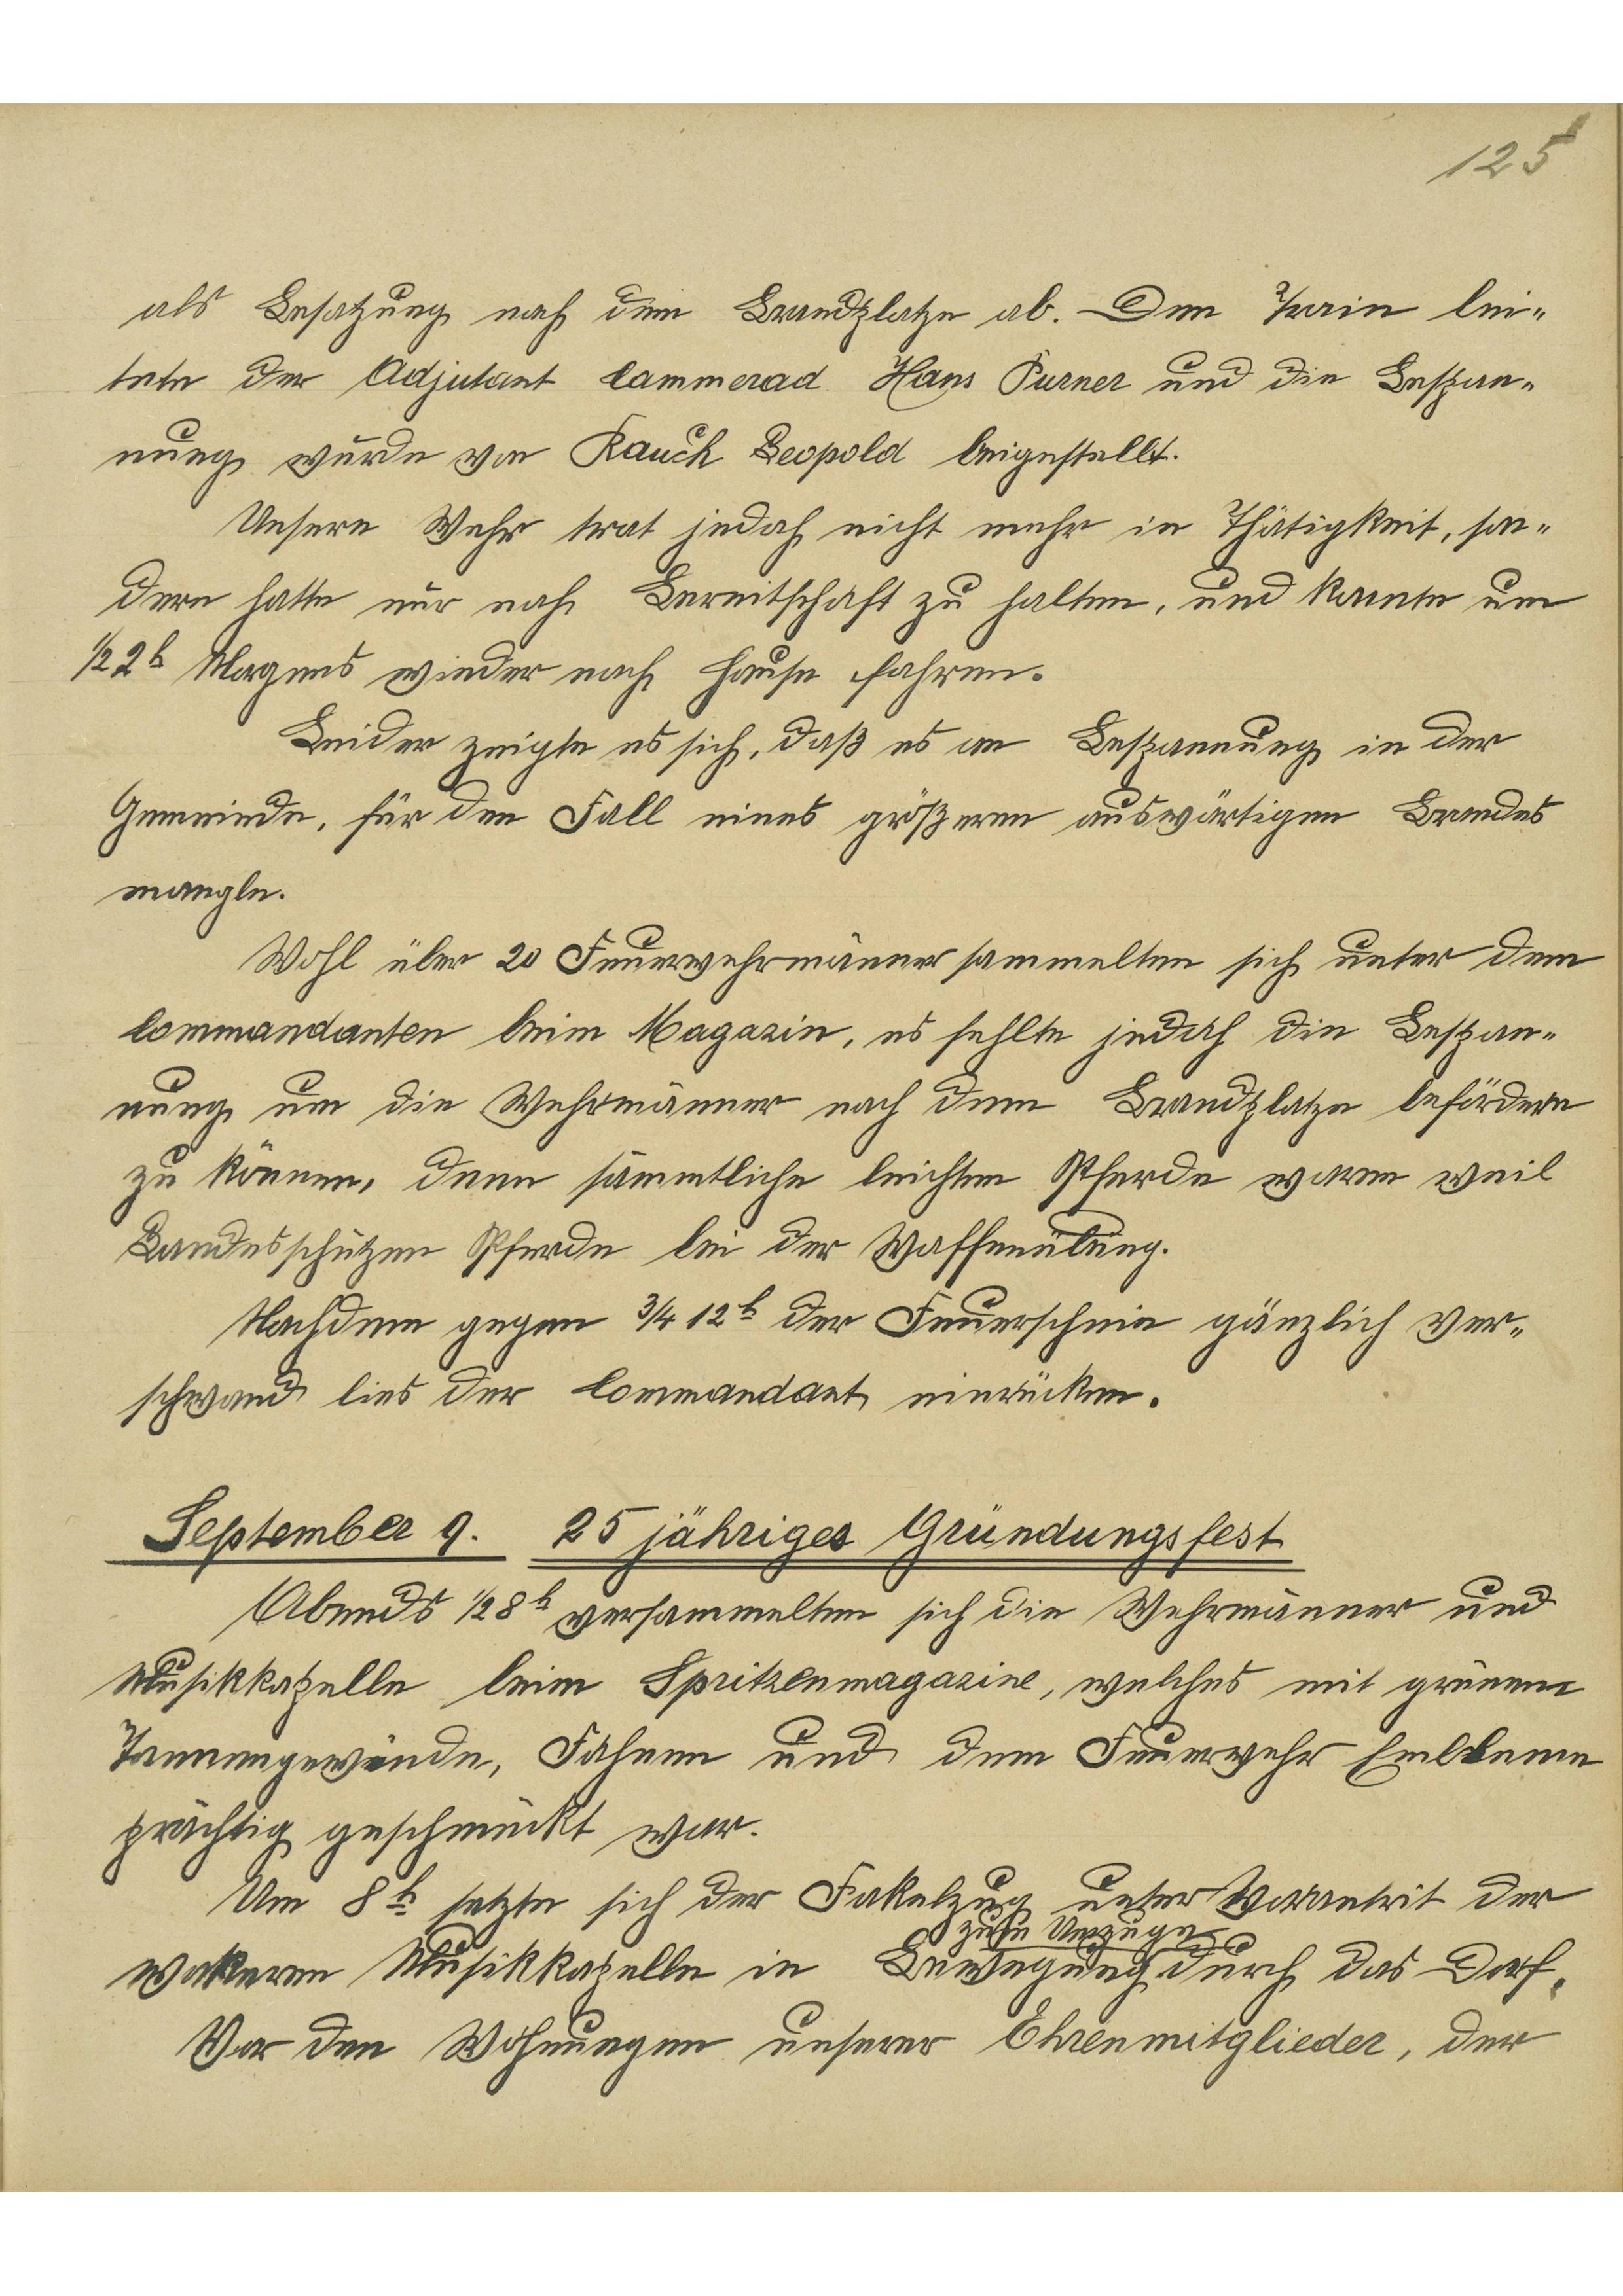 125
als Besatzung nach dem Brandplatze ab. Den Train lei-
tete der Adjutant Cammerad Hans Purner und die Bespan-
nung wurde von Rauch Leopold beigestellt.
Unsere Wehr trat jedoch nicht mehr in Thätigkeit, son-
dern hatte nur noch Bereitschaft zu halten, und konnte um
1/2 2h Morgens wieder nach Hause fahren.
Leider zeigte es sich, daß es an Bespannung in der
Gemeinde, für den Fall eines größeren auswärtigen Brandes
mangle.
Wohl über 20 Feuerwehrmänner sammelten sich unter dem
Commandanten beim Magazin, es fehlte jedoch die Bespan-
nung um die Wehrmänner nach dem Brandplatze befördern
zu können, denn sämmtliche leichten Pferde waren weil
Landesschützen Pferde bei der Waffenübung.
Nachdem gegen 3/4 12h der Feuerschein gänzlich ver-
schwand lies der Commandant einrücken.
September 9. 25 jähriges Gründungsfest
Abends 1/2 8h versammelten sich die Wehrmänner und
Musikkapelle beim Spritzenmagazine, welches mit grünem
Tannengewinde, Fahnen und dem Feuerwehr Embleme
prächtig geschmückt war.
Um 8h setzte sich der Fakelzug unter Vorantrit der
zum Umzuge
wakeren Musikkapelle in Bewegung durch das Dorf.
Vor den Wohnungen unserer Ehrenmitglieder, der